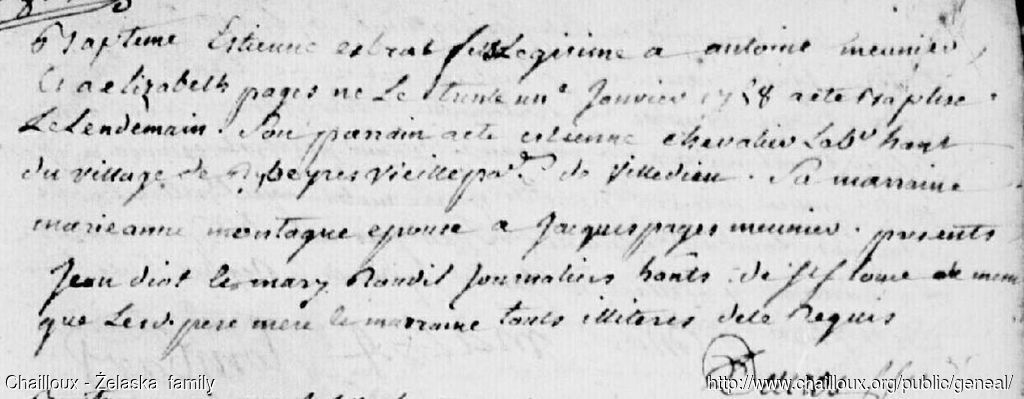 Bapteme Estienne estrat fils legitime a antoine meunier
Et a elizabeth pages ne Le trente un.e Janvier 1758 a ete Baptise
Le Lendemain. Son parrain a ete estienne chevalier Lab.r hant
du village de Peyres vieille par.sse de villedieu. Sa marraine
marieanne montaque epouse a Jacques pages meunier. presents
Jean diot Roudil Journaliers hants de St flour de meme
que Le sd. pere mere la marraine touts illiteres de ce Requis
Chailloux - Żelaska family
http://www.chailloux.org/public/geneal/